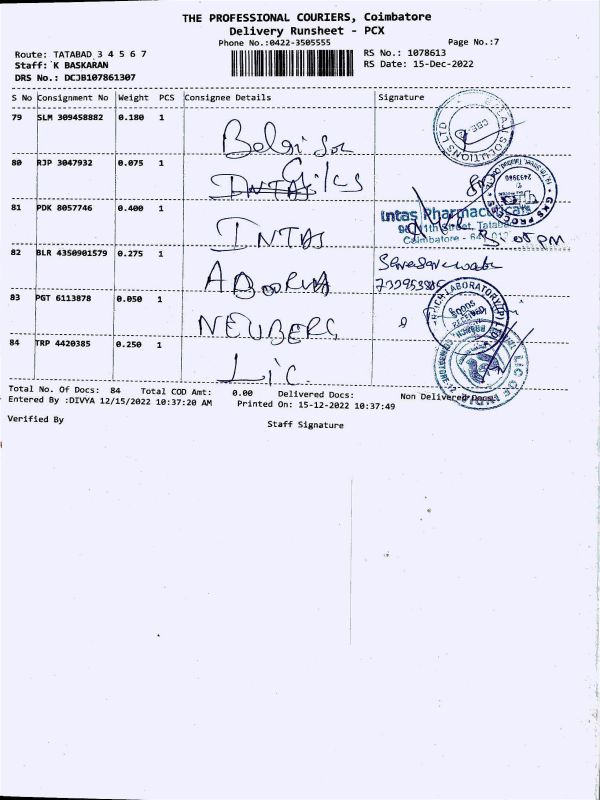 THE PROFESSIONAL COURIERS, Coimbatore
Delivery Runsheet - PCX
Phone No.:0422-3505555
Page No.:7
Route: TATABAD 3 4 5 6 7
Staff: K BASKARAN
DRS No.: DCJB107861307
RS No.: 1078613
RS Date: 15-Dec-2022
S No Consignment No Weight PCS Consignee Details Signature
79 SLM 309458882 0.180 1
80 RJP 3047932 0.075 1
81 PDK 8057746 0.400 1 INTAS
Intas Pharmaceuticals
11th Street, Tatabad
Coimbatore - 641 012
82 BLR 4350901579 0.275 1 ABOORVA
83 PGT 6113878 0.050 1 NEUBERG
84 TRP 4420385 0.250 1 LIC
Total No. Of Docs: 84 Total COD Amt: 0.00 Delivered Docs: Non Delivered Docs:
Entered By :DIVYA 12/15/2022 10:37:20 AM Printed On: 15-12-2022 10:37:49
Verified By
Staff Signature